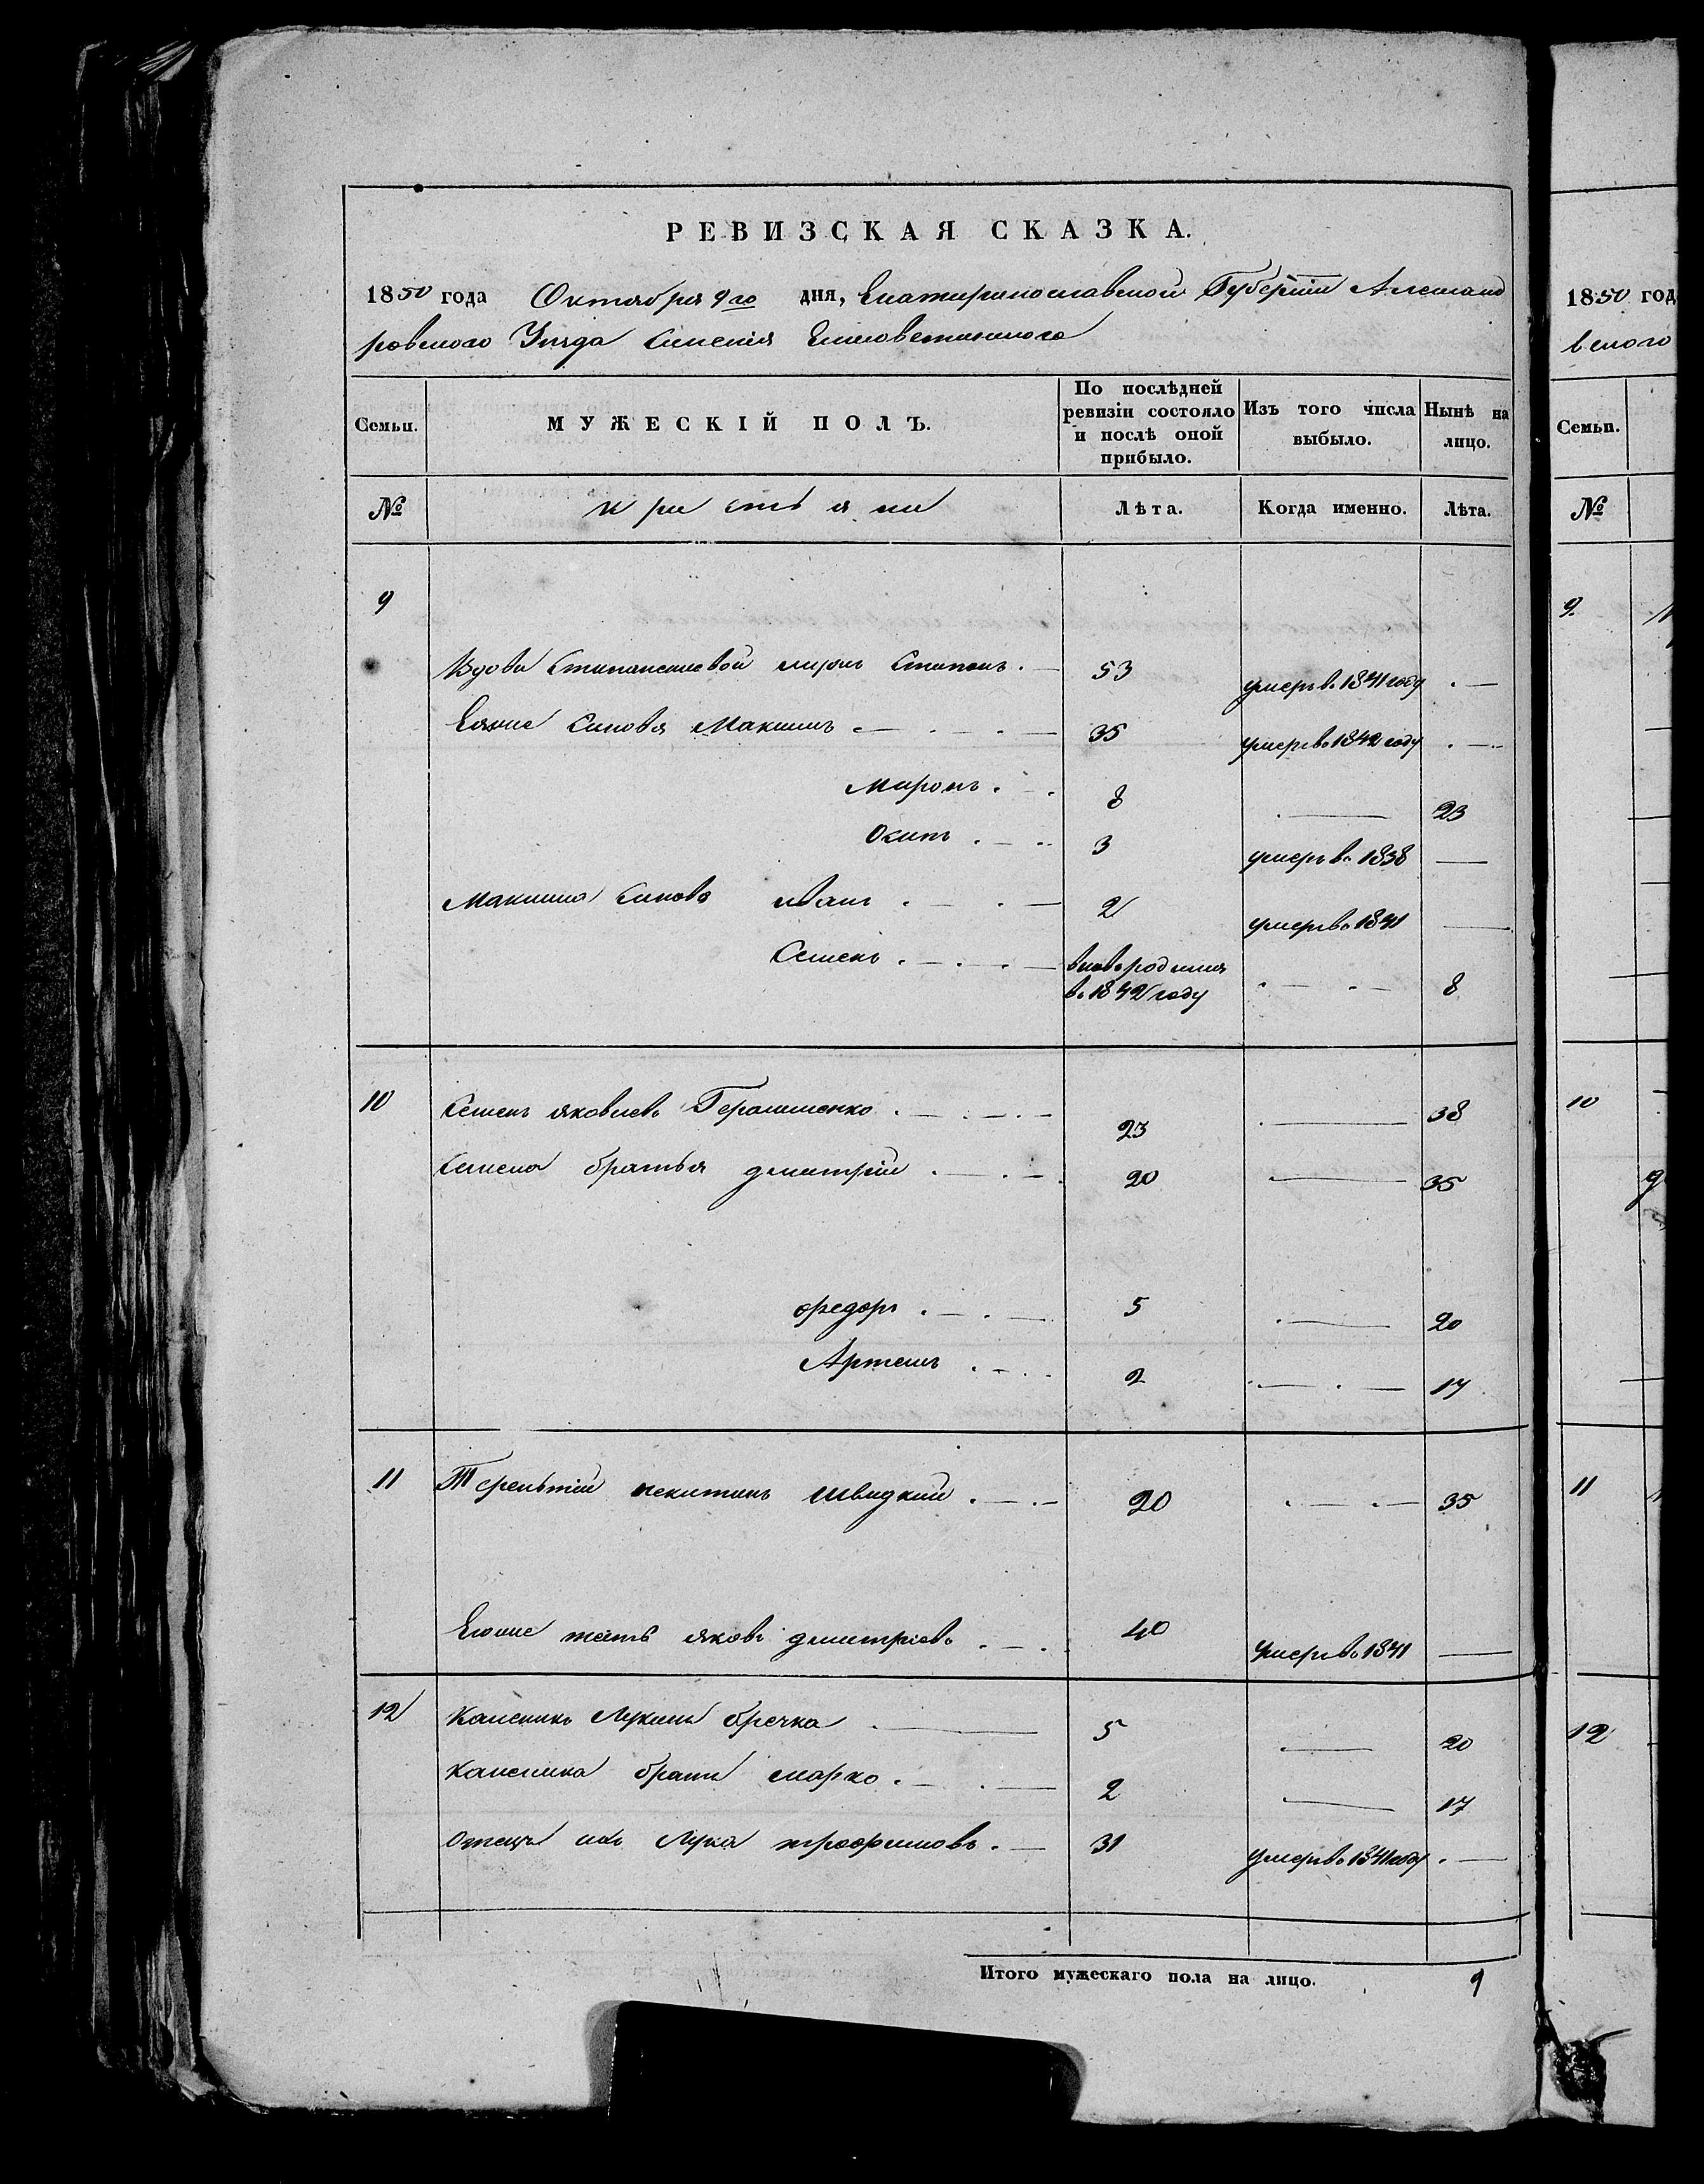 РЕВИЗСКАЯ СКАЗКА.
1850 года Октября 9го дня, Екатеринославской Губернии Александ
ровского Уезда Имения Елисоветинского
1850 год
вского
Семьи. МУЖЕСКІЙ ПОЛЪ. По послѣдней ревизіи состояло и послѣ оной прибыло. Изъ того числа выбыло. Нынѣ на лицо.
Семьи.
№ крестьяни Лѣта. Когда именно. Лѣта.
№
9
9
Вдови мужъ Степанъ. 53 умеръ в. 1841 году
Еяжие Синовя Максимъ 35 умеръ в. 1842 году
Миронъ. 8 23
Окимъ 3 умеръ в. 1838
Максима Синовя иванъ 2 умеръ в. 1841
Семенъ вновь родился в. 1842 году 8
10 Семенъ яковлевъ Герашенко 23 38
10
Семена братья дмитрій 20 35
федоръ 5 20
Артемъ 2 17
11 Терентій никитинъ швидкий 20 35
11
Егоже зять яковъ дмитріевъ 40 умеръ в. 1841
12 Каленикъ Лукинъ бречка 5 20
12
Каленика братъ марко 2 17
Отецъ ихъ Лука трофимовъ 31 умеръ в. 1841 году
Итого мужескаго пола на лицо. 9